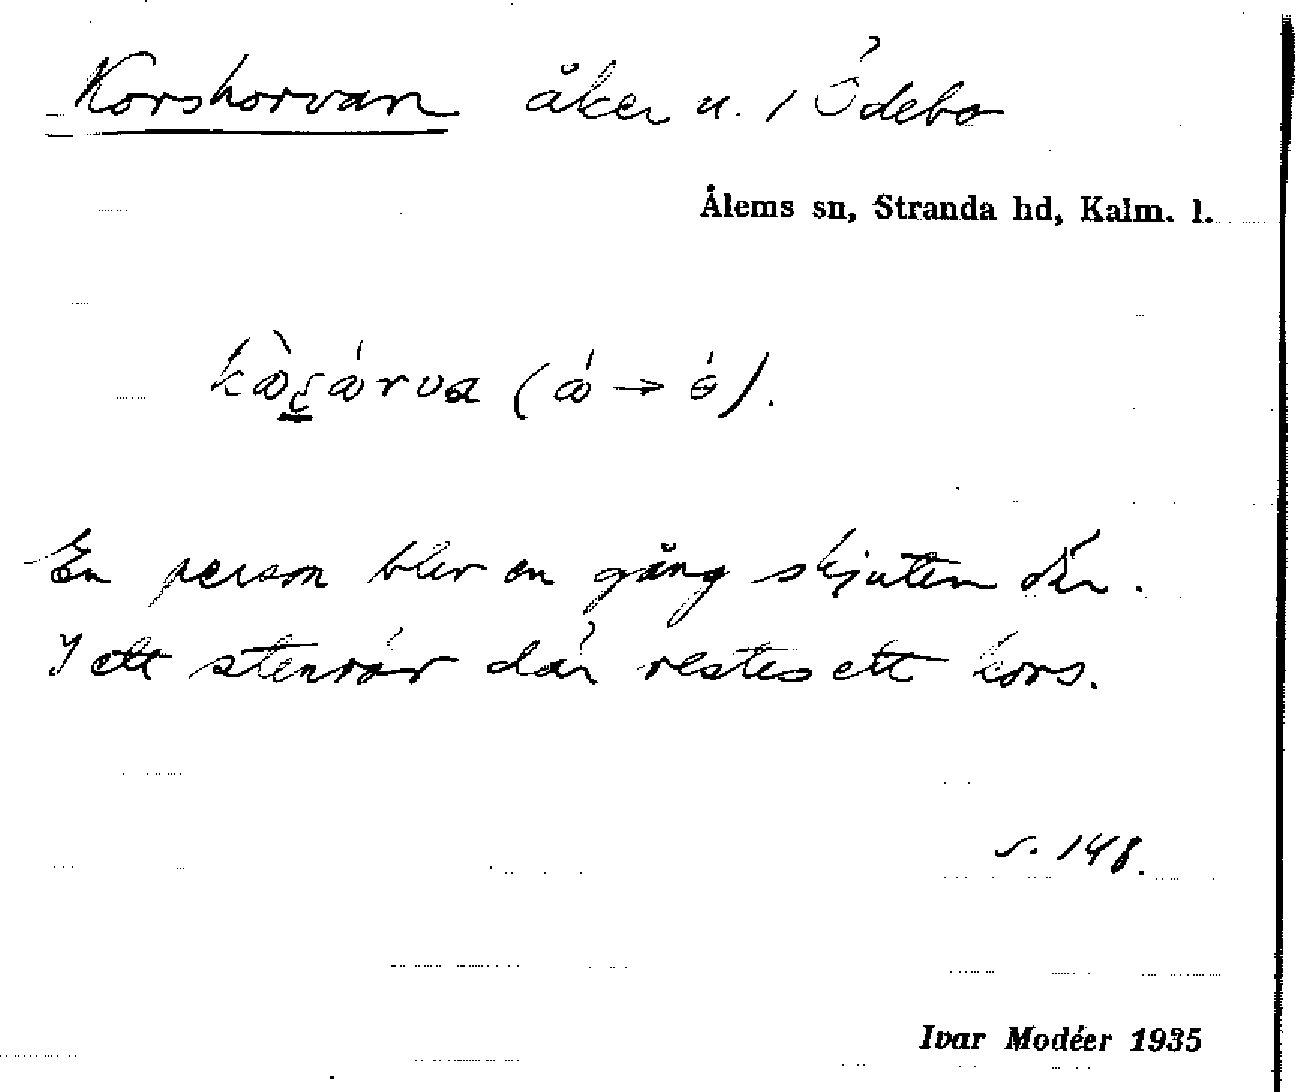 Korshorvan åker u. 1 Ödebo
Ålems sn, Stranda hd, Kalm. l.
En person blev en gång skjuten där.
I ett stenrör där restes ett kors.
s. 148.
Ivar Modéer 1935